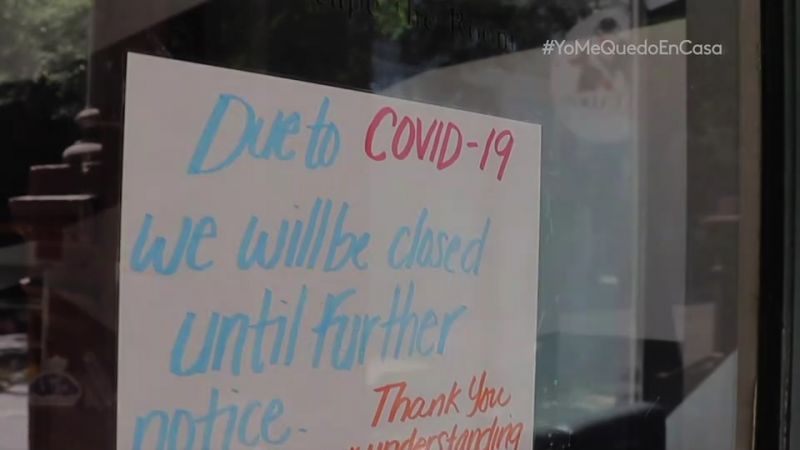 the Room
#YoMeQuedoEnCasa
Due to COVID-19
we will be closed
until Further
notice.
Thank You
understanding